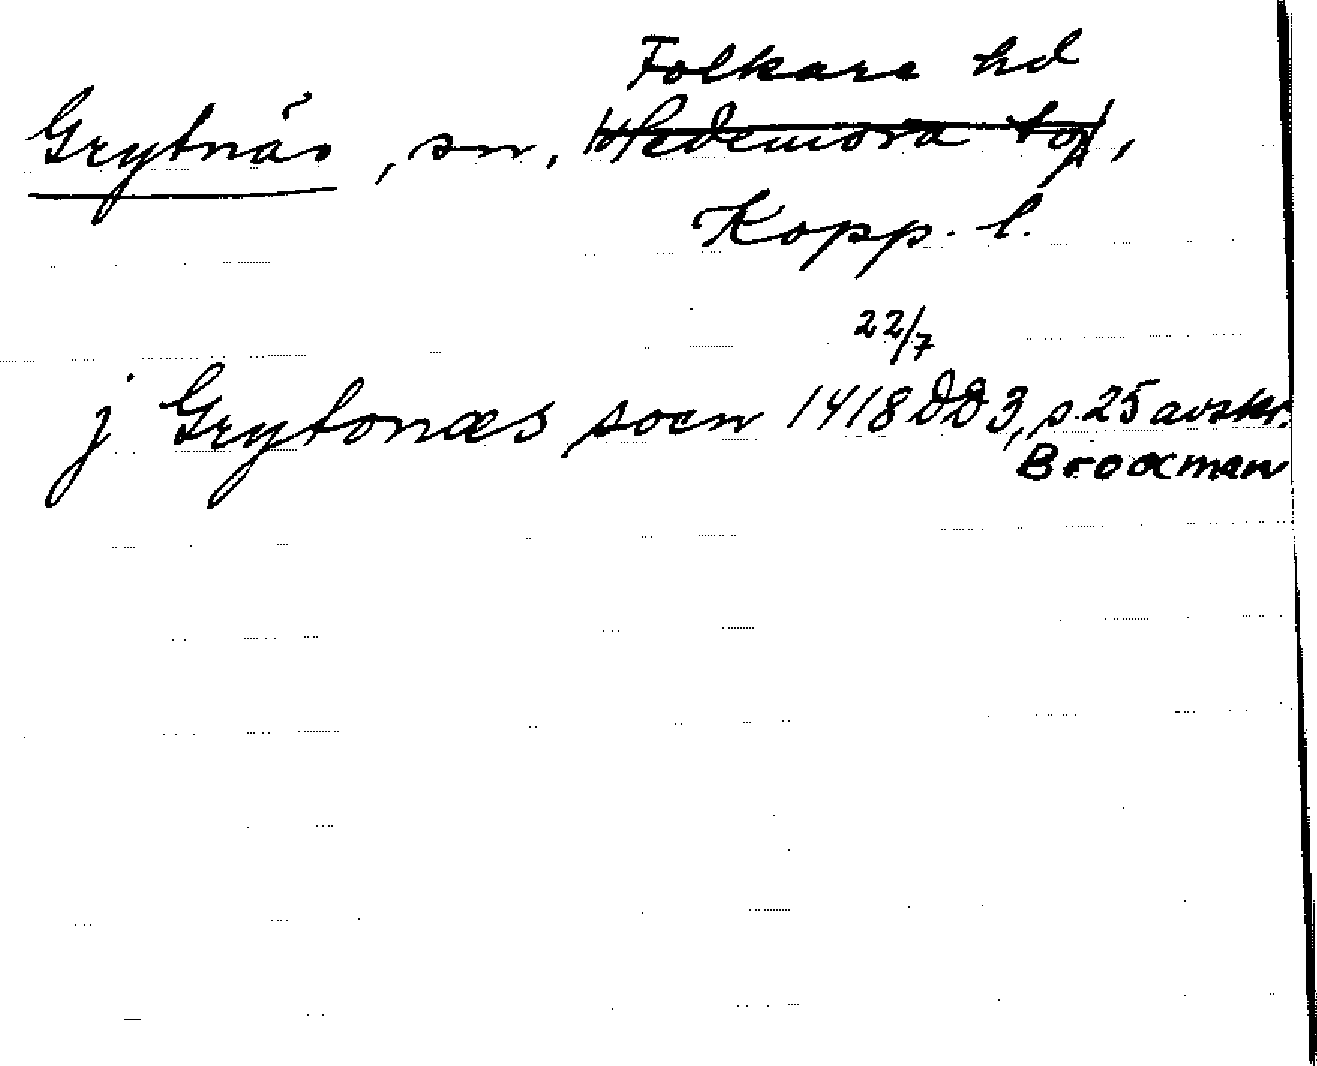 Folkare hd
Grytnäs, sn, Hedemora tg,
Kopp. l.
22/7
j Grytonæs socn 1418 DD 3, s. 25 avskr.
Brocman